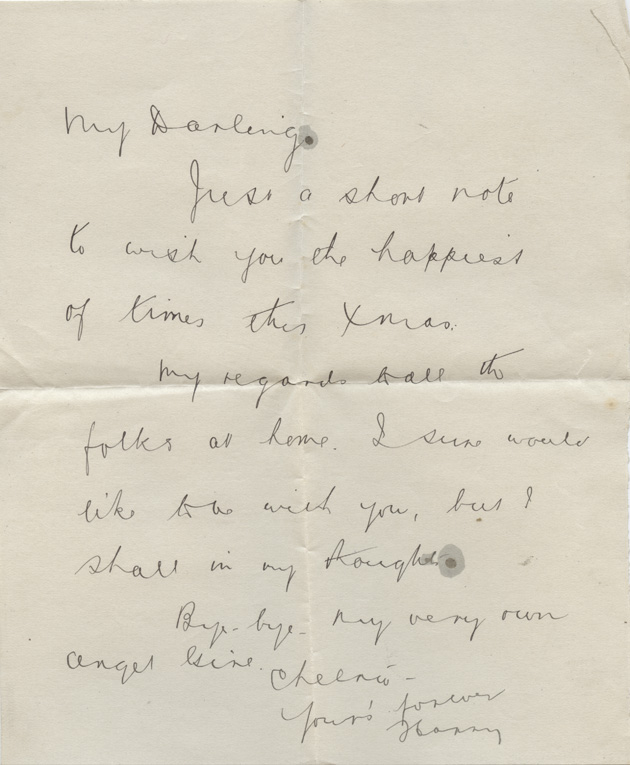 My Darling.
Just a short note
to wish you the happiest
of times this Xmas.
My regards to all the
folks at home. I sure would
like to be with you, but I
shall in my thoughts.
Bye-bye- My very own
angel
Cheerio-
Your's forever
Harry